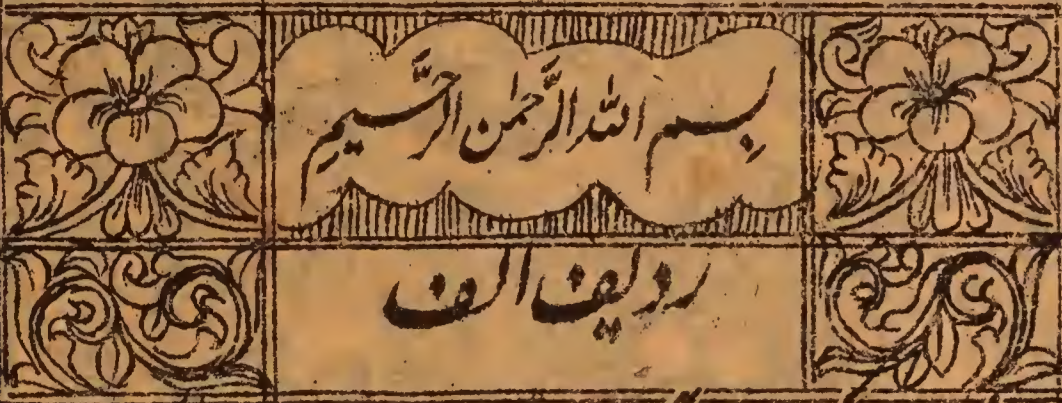 بِسم اللہ الرَّحمٰن الرَّحِیمِ
ردیف الف